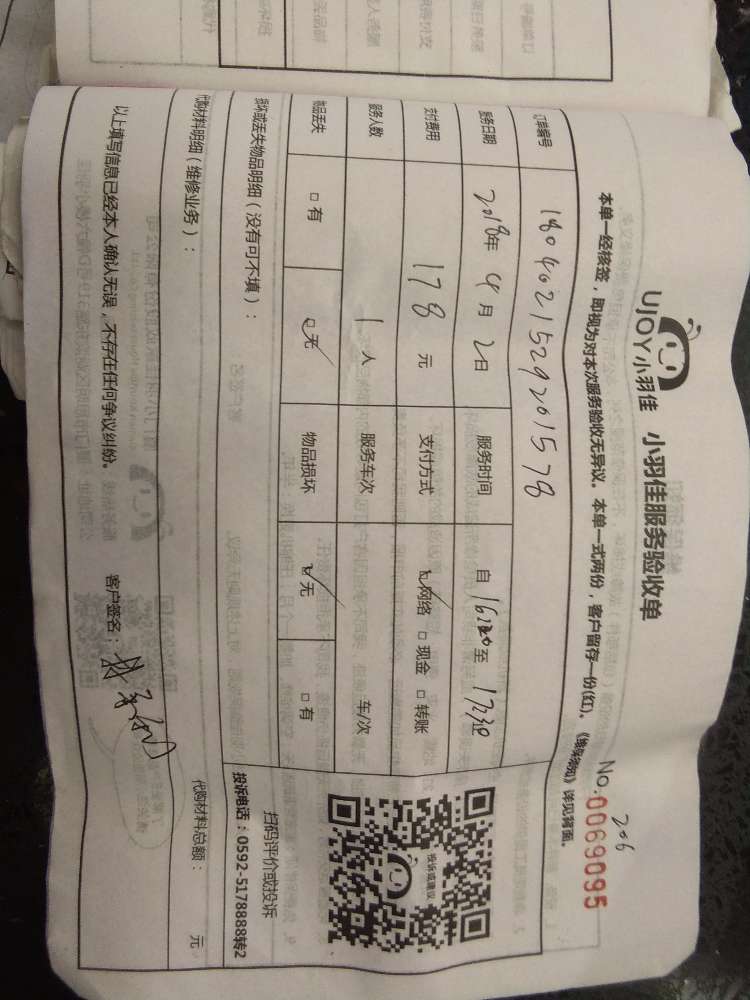 UJOY小羽佳 小羽佳服务验收单
206
No.0069095
本单一经核签，即视为对本次服务验收无异议。本单一式两份，客户留存一份(红)。《维保须知》详见背面。
订单编号 1804021529201578
服务日期 2018年4月2日 服务时间 自16:20至17:30
支付费用 178元 支付方式 ☑网络 □现金 □转账
服务人数 1人 服务车次 车/次
物品丢失 □有 ☑无 物品损坏 ☑无 □有
损坏或丢失物品明细（没有可不填）：
扫码评价或投诉
投诉电话：0592-5178888转2
投诉或建议
代购材料明细（维修业务）：
代购材料总额： 元
以上填写信息已经本人确认无误，不存在任何争议纠纷。 客户签名：